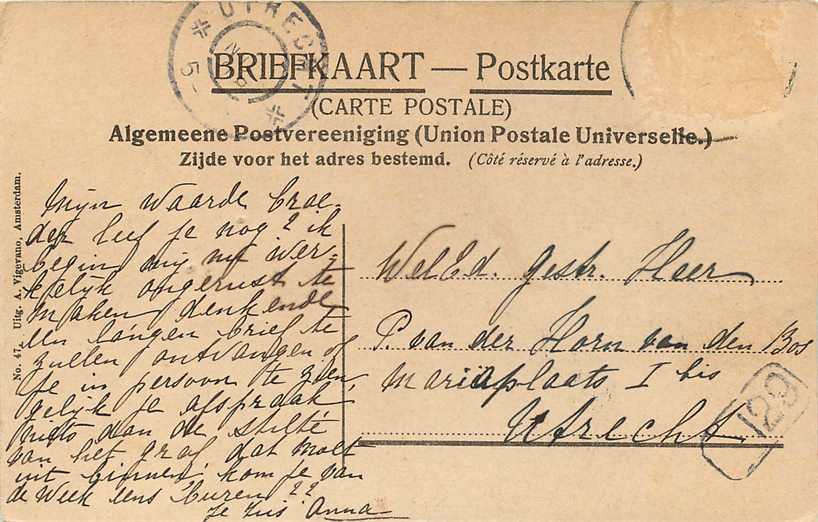 UTRECHT
BRIEFKAART — Postkarte
(CARTE POSTALE)
Algemeene Postvereeniging (Union Postale Universelle.)
Zijde voor het adres bestemd. (Côté réservé à l'adresse.)
No. 47, Uitg. A. Vigevano, Amsterdam.
Mijn waarde broe-
der leef je nog? ik
begin mij nu wer-
kelijk ongerust te
maken denkende
een langen brief te
zullen ontvangen of
je in persoon te zien
gelijk je afspraak,
niets dan de stilte
van het graf dat moet
uit binnen! kom je van
de week eens buren??
je zus Anna
WelEd. gestr. Heer
P. van der Horn van den Bos
Mariaplaats I bis
Utrecht
129